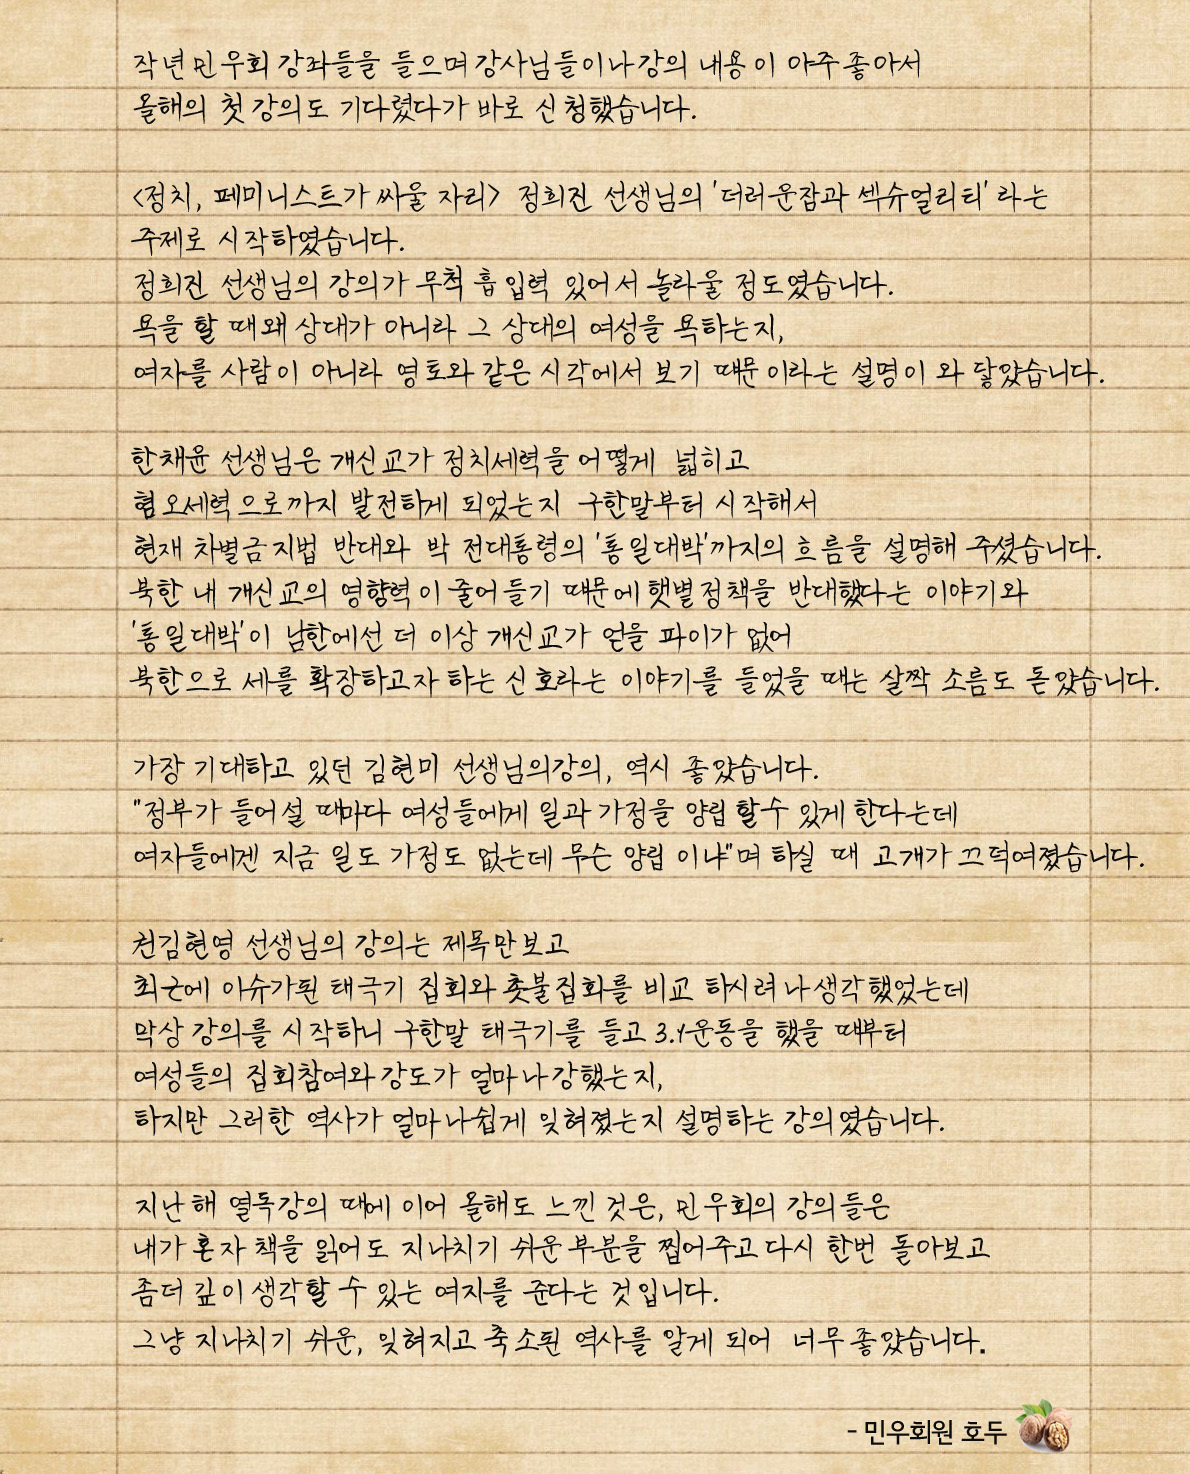 작년 민우회 강좌들을 들으며 강사님들이나 강의 내용이 아주 좋아서
올해의 첫 강의도 기다렸다가 바로 신청했습니다.
<정치, 페미니스트가 싸울 자리> 정희진 선생님의 '더러운잡과 섹슈얼리티' 라는
주제로 시작하였습니다.
정희진 선생님의 강의가 무척 흡입력 있어서 놀라울 정도였습니다.
욕을 할 때 왜 상대가 아니라 그 상대의 여성을 욕하는지,
여자를 사람이 아니라 영토와 같은 시각에서 보기 때문이라는 설명이 와 닿았습니다.
한채윤 선생님은 개신교가 정치세력을 어떻게 넓히고
혐오세력으로까지 발전하게 되었는지 구한말부터 시작해서
현재 차별금지법 반대와 박 전대통령의 '통일대박'까지의 흐름을 설명해 주셨습니다.
북한 내 개신교의 영향력이 줄어들기 때문에 햇볕정책을 반대했다는 이야기와
'통일대박'이 남한에선 더 이상 개신교가 얻을 파이가 없어
북한으로 세를 확장하고자 하는 신호라는 이야기를 들었을 때는 살짝 소름도 돋았습니다.
가장 기대하고 있던 김현미 선생님의강의, 역시 좋았습니다.
"정부가 들어설 때마다 여성들에게 일과 가정을 양립 할수 있게 한다는데
여자들에겐 지금 일도 가정도 없는데 무슨 양립 이냐"며 하실 때 고개가 끄덕여졌습니다.
권김현영 선생님의 강의는 제목만보고
최근에 이슈가된 태극기 집회와 촛불집회를 비교 하시려나 생각했었는데
막상 강의를 시작하니 구한말 태극기를 들고 3.1운동을 했을 때부터
여성들의 집회참여와 강도가 얼마나 강했는지,
하지만 그러한 역사가 얼마나 쉽게 잊혀졌는지 설명하는 강의였습니다.
지난해 열독강의 때에 이어 올해도 느낀 것은, 민우회의 강의들은
내가 혼자 책을 읽어도 지나치기 쉬운 부분을 찝어주고 다시 한번 돌아보고
좀더 깊이 생각할 수 있는 여지를 준다는 것입니다.
그냥 지나치기 쉬운, 잊혀지고 축소된 역사를 알게 되어 너무 좋았습니다.
- 민우회원 호두